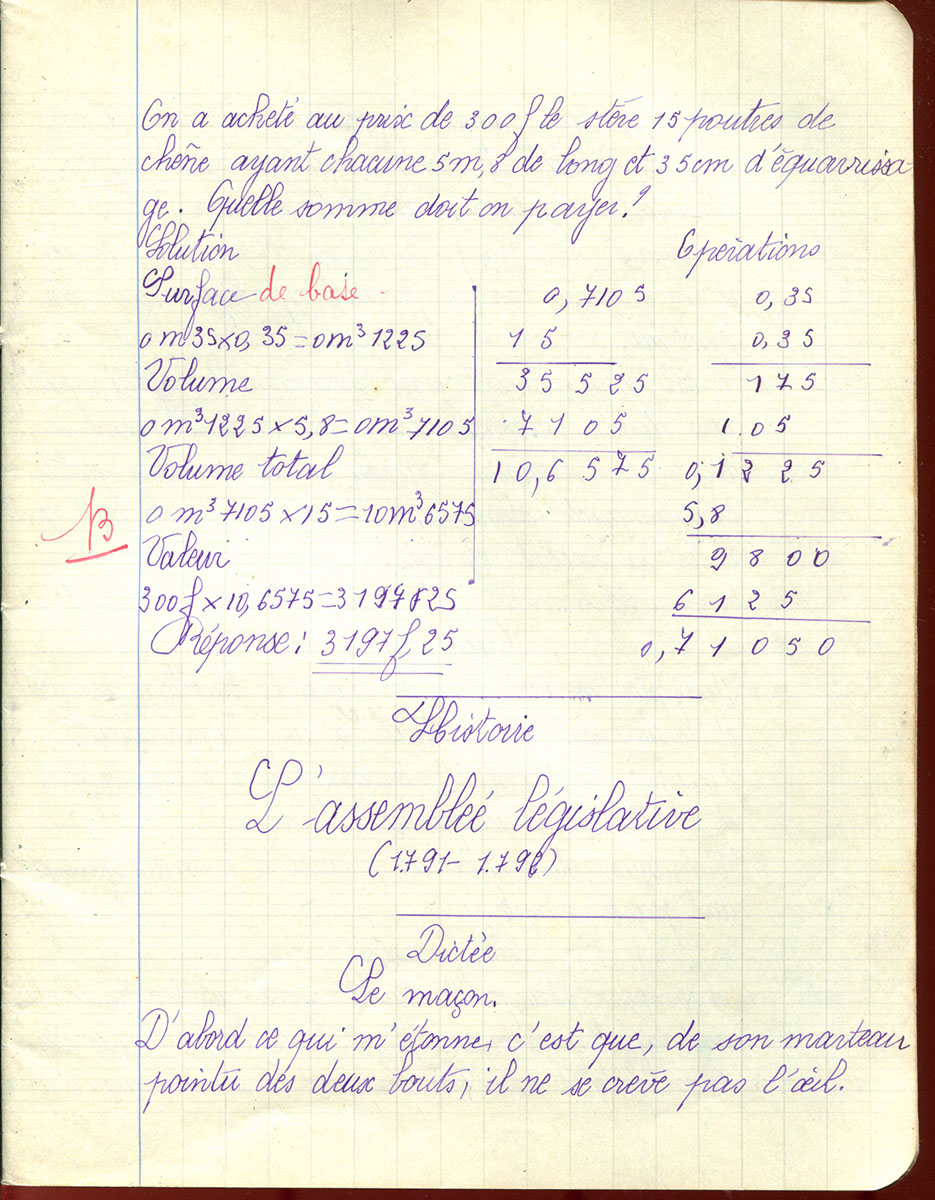 On a acheté au prix de 300f le stère 15 poutres de
chêne ayant chacune 5m,8 de long et 35cm d'équarrissa-
ge. Quelle somme doit on payer?
Solution
Opérations
Surface de base.
0m35x0,35=0m³1225
Volume
0m³1225x5,8=0m³7105
Volume total
0m³7105x15=10m³6575
Valeur
300fx10,6575=3197f25
Réponse: 3197f25
B
0,7105
15
35525
7105
10,6575
0,35
0,35
175
1.05
0,1225
5,8
9800
6125
0,71050
Histoire
L'assemblée législative
(1.791-1.792)
Dictée
Le maçon.
D'abord ce qui m'étonne, c'est que, de son marteau
pointu des deux bouts, il ne se crève pas l'œil.